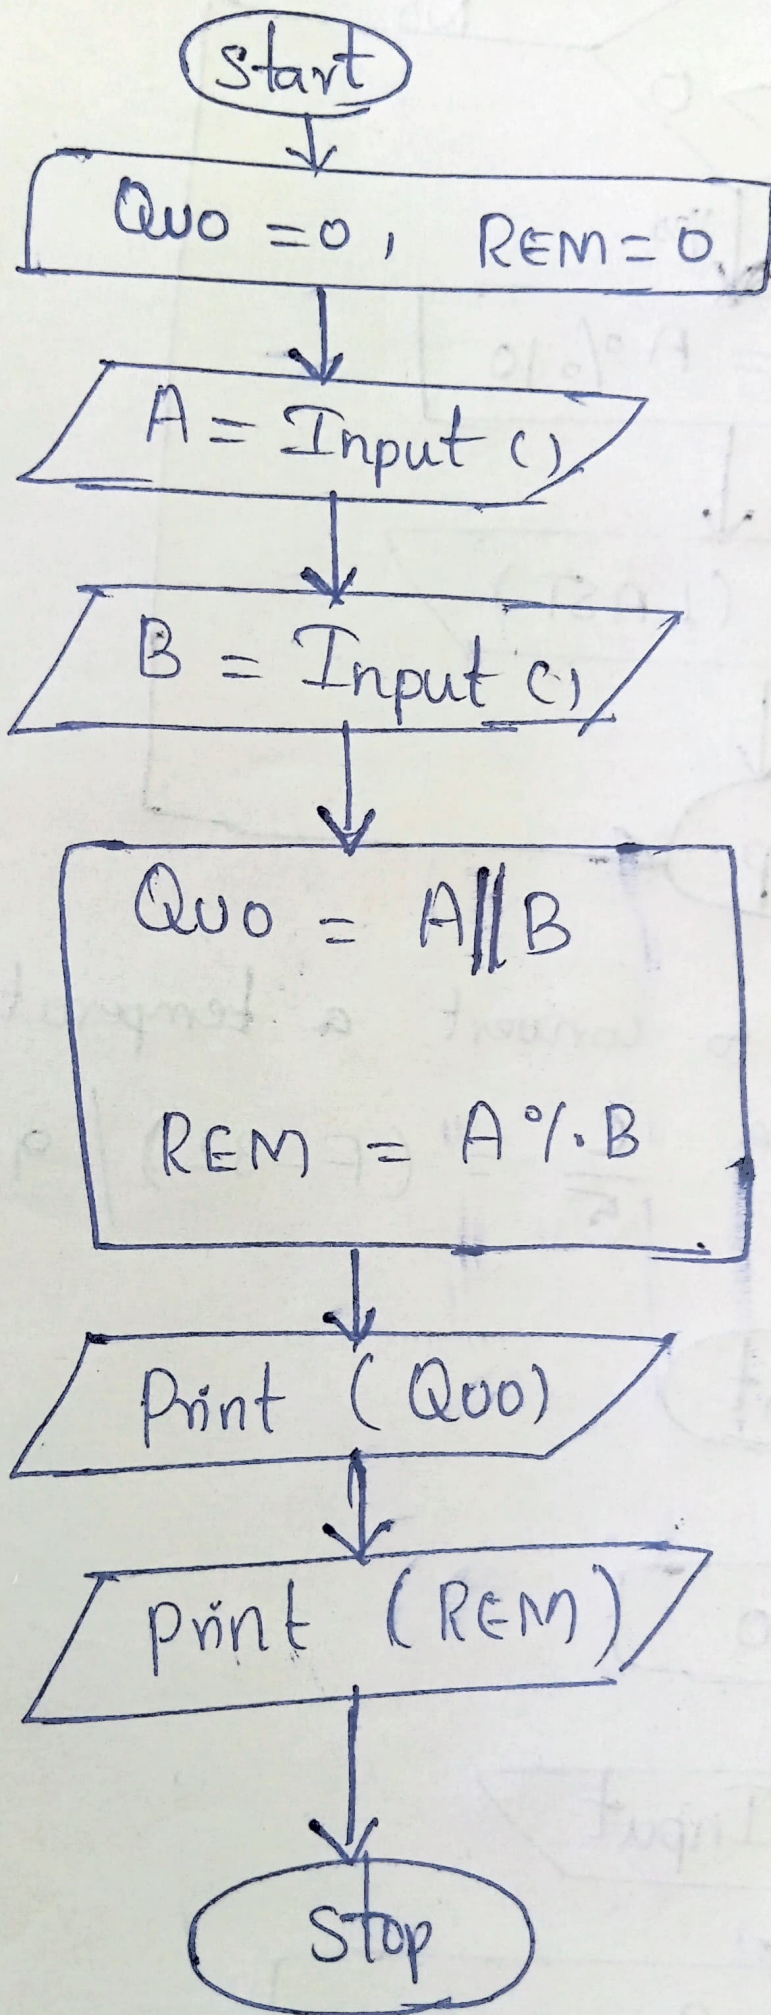 Start
QUO = 0, REM = 0
A = Input ()
B = Input ()
QUO = A//B
REM = A % B
Print (QUO)
Print (REM)
Stop